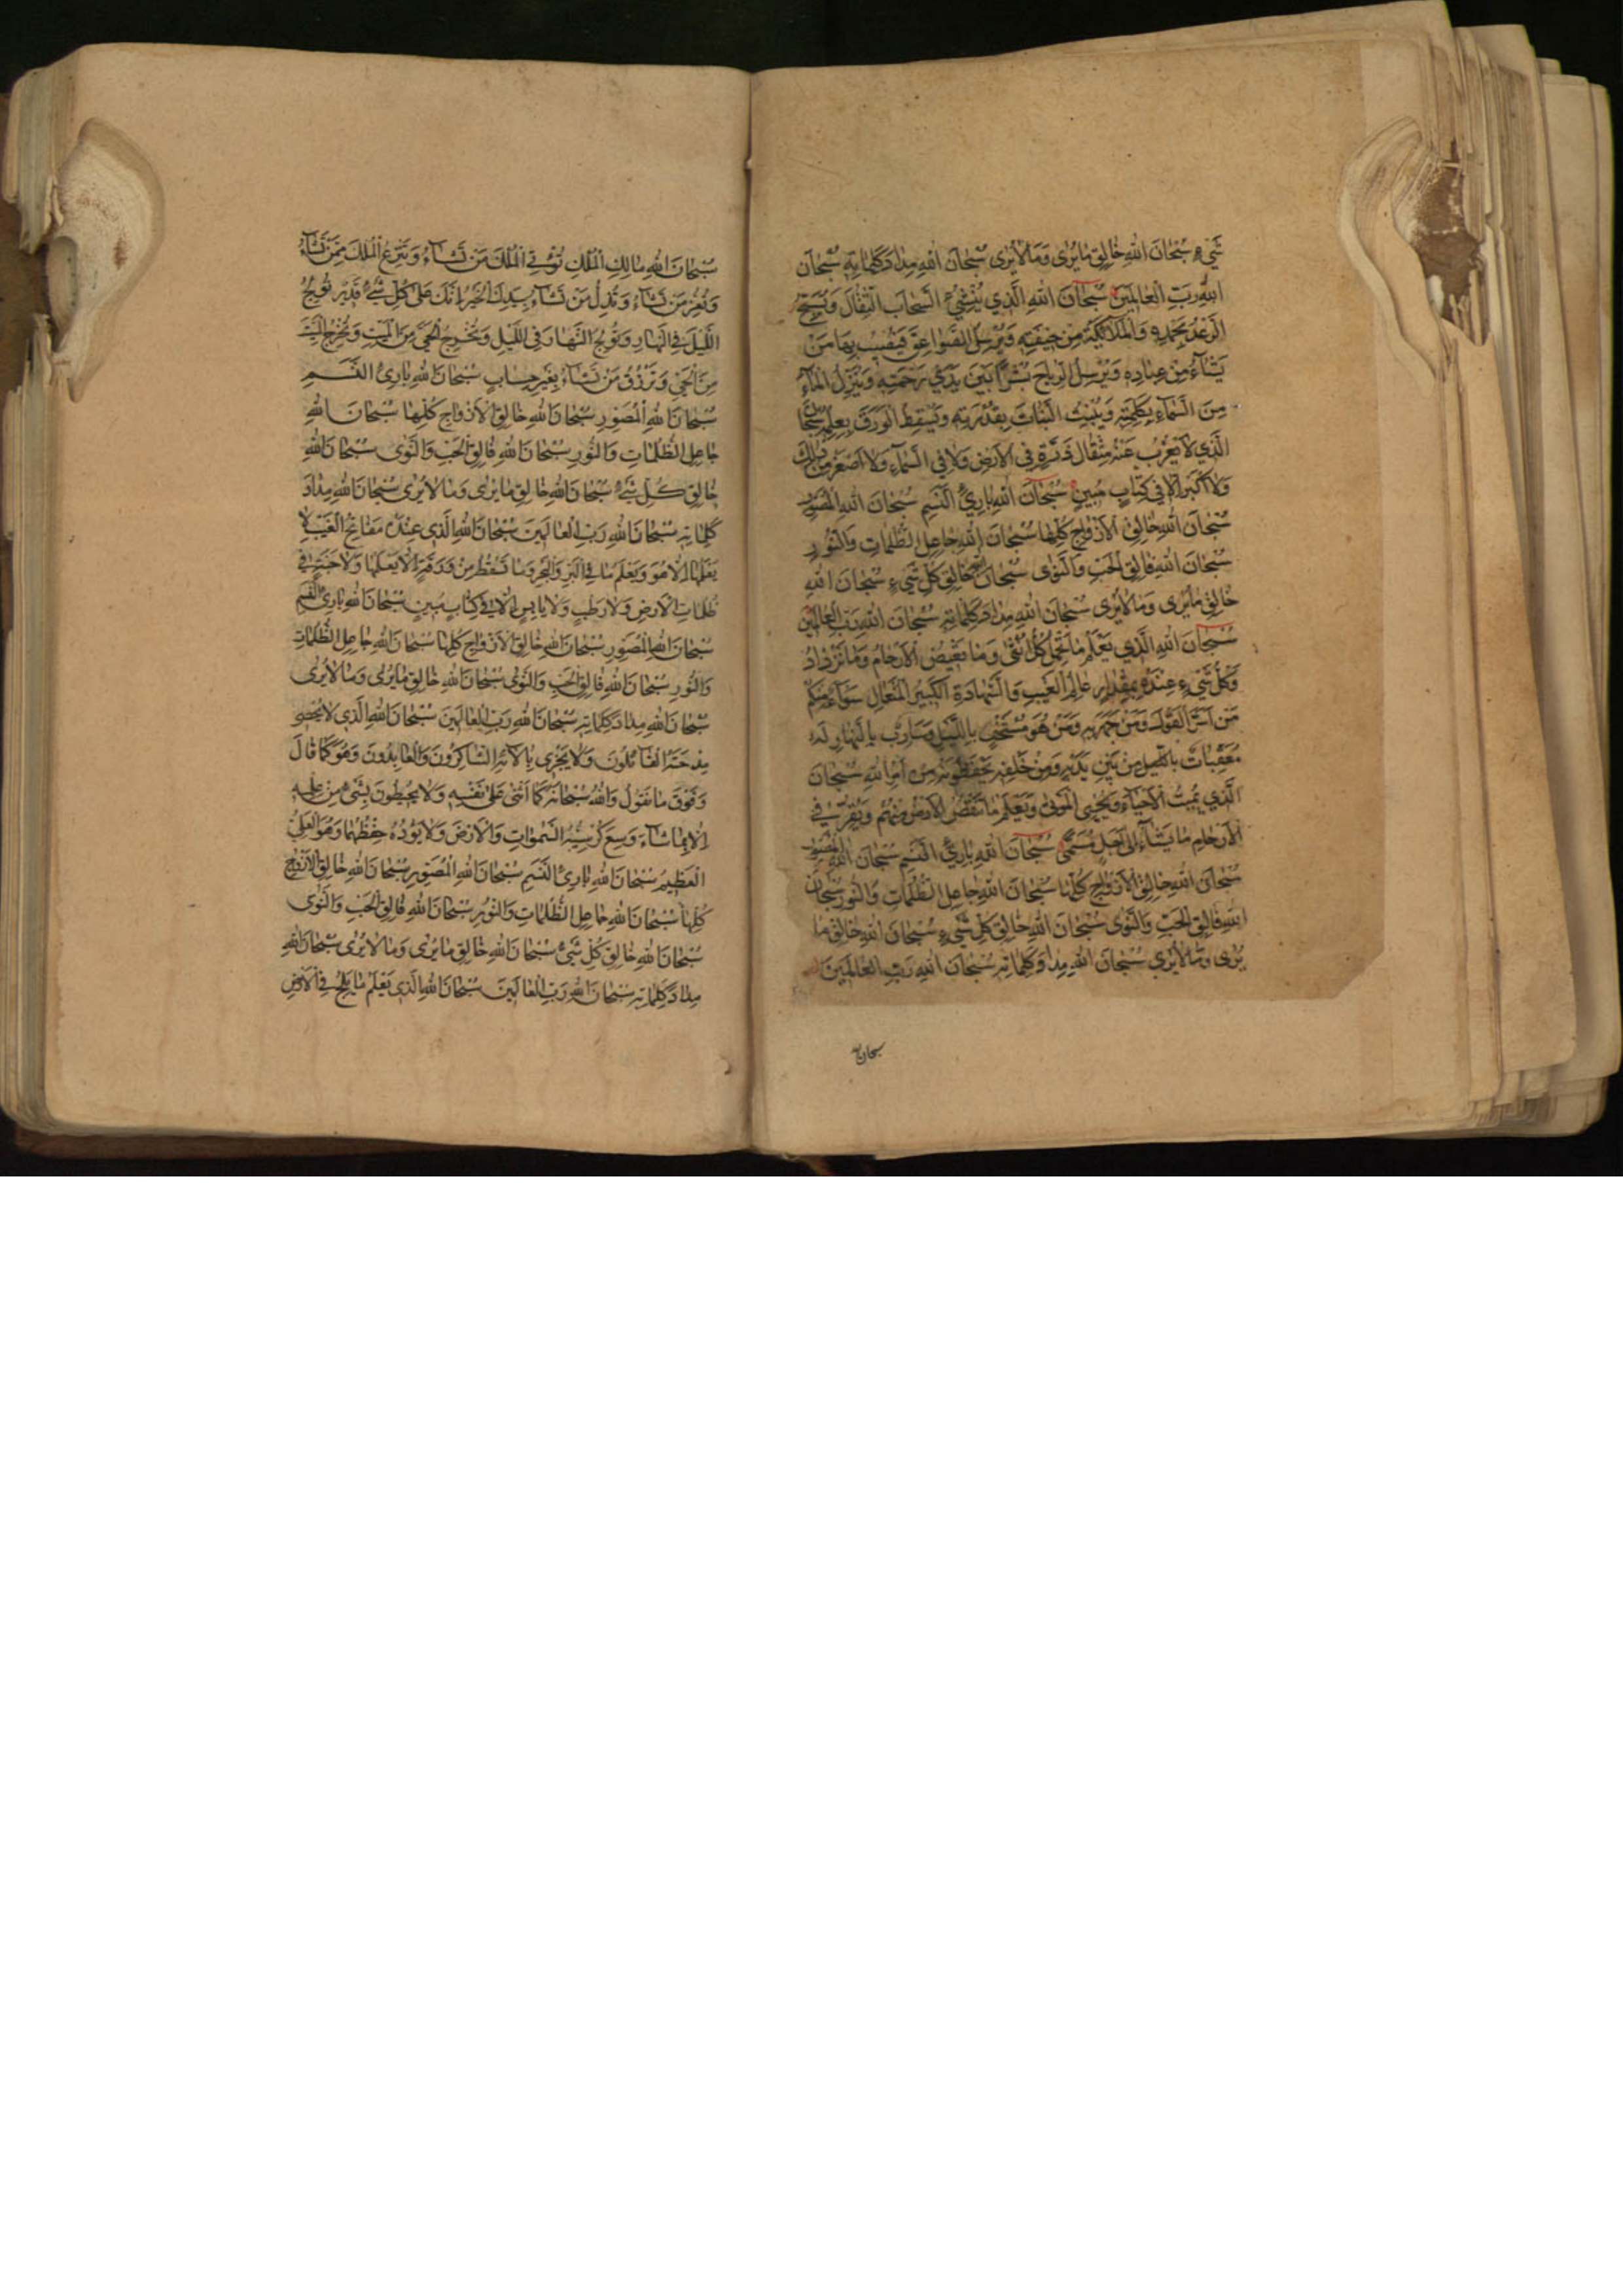 شَيْءٍ سُبْحَانَ اللهِ خَالِقِ مَا يُرٰى وَمَا لَا يُرٰى سُبْحَانَ اللهِ مِدَادَ كَلِمَاتِهِ سُبْحَانَ
اللهِ رَبِّ الْعَالَمِينَ سُبْحَانَ اللهِ الَّذِي يُنْشِئُ السَّحَابَ الثِّقَالَ وَيُسَبِّحُ
الرَّعْدُ بِحَمْدِهِ وَالْمَلَائِكَةُ مِنْ خِيفَتِهِ وَيُرْسِلُ الصَّوَاعِقَ فَيُصِيبُ بِهَا مَنْ
يَشَآءُ مِنْ عِبَادِهِ وَيُرْسِلُ الرِّيَاحَ بُشْرًا بَيْنَ يَدَيْ رَحْمَتِهِ وَيُنَزِّلُ الْمَآءَ
مِنَ السَّمَآءِ بِكَلِمَتِهِ وَيُنْبِتُ النَّبَاتَ بِقُدْرَتِهِ وَيَسْقُطُ الْوَرَقُ بِعِلْمِهِ سُبْحَانَ
الَّذِي لَا يَعْزُبُ عَنْهُ مِثْقَالُ ذَرَّةٍ فِي الْاَرْضِ وَلَا فِي السَّمَآءِ وَلَا اَصْغَرُ مِنْ ذٰلِكَ
وَلَا اَكْبَرُ اِلَّا فِي كِتَابٍ مُبِينٍ سُبْحَانَ اللهِ بَارِئِ النَّسَمِ سُبْحَانَ اللهِ الْمُصَوِّرِ
سُبْحَانَ اللهِ خَالِقِ الْاَزْوَاجِ كُلِّهَا سُبْحَانَ اللهِ جَاعِلِ الظُّلُمَاتِ وَالنُّورِ
سُبْحَانَ اللهِ فَالِقِ الْحَبِّ وَالنَّوٰى سُبْحَانَ اللهِ خَالِقِ كُلِّ شَيْءٍ سُبْحَانَ اللهِ
خَالِقِ مَا يُرٰى وَمَا لَا يُرٰى سُبْحَانَ اللهِ مِدَادَ كَلِمَاتِهِ سُبْحَانَ اللهِ رَبِّ الْعَالَمِينَ
سُبْحَانَ اللهِ الَّذِي يَعْلَمُ مَا تَحْمِلُ كُلُّ اُنْثٰى وَمَا تَغِيضُ الْاَرْحَامُ وَمَا تَزْدَادُ
وَكُلُّ شَيْءٍ عِنْدَهُ بِمِقْدَارٍ عَالِمُ الْغَيْبِ وَالشَّهَادَةِ الْكَبِيرُ الْمُتَعَالِ سَوَآءٌ مِنْكُمْ
مَنْ اَسَرَّ الْقَوْلَ وَمَنْ جَهَرَ بِهِ وَمَنْ هُوَ مُسْتَخْفٍ بِاللَّيْلِ وَسَارِبٌ بِالنَّهَارِ لَهُ
مُعَقِّبَاتٌ مِنْ بَيْنِ يَدَيْهِ وَمِنْ خَلْفِهِ يَحْفَظُونَهُ مِنْ اَمْرِ اللهِ سُبْحَانَ
الَّذِي يُمِيتُ الْاَحْيَآءَ وَيُحْيِي الْمَوْتٰى وَيَعْلَمُ مَا تَنْقُصُ الْاَرْضُ مِنْهُمْ وَيُقِرُّ فِي
الْاَرْحَامِ مَا يَشَآءُ اِلٰى اَجَلٍ مُسَمًّى سُبْحَانَ اللهِ بَارِئِ النَّسَمِ سُبْحَانَ اللهِ الْمُصَوِّرِ
سُبْحَانَ اللهِ خَالِقِ الْاَزْوَاجِ كُلِّهَا سُبْحَانَ اللهِ جَاعِلِ الظُّلُمَاتِ وَالنُّورِ سُبْحَانَ
اللهِ فَالِقِ الْحَبِّ وَالنَّوٰى سُبْحَانَ اللهِ خَالِقِ كُلِّ شَيْءٍ سُبْحَانَ اللهِ خَالِقِ مَا
يُرٰى وَمَا لَا يُرٰى سُبْحَانَ اللهِ مِدَادَ كَلِمَاتِهِ سُبْحَانَ اللهِ رَبِّ الْعَالَمِينَ
سبحان الله
سُبْحَانَ اللهِ مَالِكِ الْمُلْكِ تُؤْتِي الْمُلْكَ مَنْ تَشَآءُ وَتَنْزِعُ الْمُلْكَ مِمَّنْ تَشَآءُ
وَتُعِزُّ مَنْ تَشَآءُ وَتُذِلُّ مَنْ تَشَآءُ بِيَدِكَ الْخَيْرُ اِنَّكَ عَلٰى كُلِّ شَيْءٍ قَدِيرٌ تُولِجُ
اللَّيْلَ فِي النَّهَارِ وَتُولِجُ النَّهَارَ فِي اللَّيْلِ وَتُخْرِجُ الْحَيَّ مِنَ الْمَيِّتِ وَتُخْرِجُ الْمَيِّتَ
مِنَ الْحَيِّ وَتَرْزُقُ مَنْ تَشَآءُ بِغَيْرِ حِسَابٍ سُبْحَانَ اللهِ بَارِئِ النَّسَمِ
سُبْحَانَ اللهِ الْمُصَوِّرِ سُبْحَانَ اللهِ خَالِقِ الْاَزْوَاجِ كُلِّهَا سُبْحَانَ اللهِ
جَاعِلِ الظُّلُمَاتِ وَالنُّورِ سُبْحَانَ اللهِ فَالِقِ الْحَبِّ وَالنَّوٰى سُبْحَانَ اللهِ
خَالِقِ كُلِّ شَيْءٍ سُبْحَانَ اللهِ خَالِقِ مَا يُرٰى وَمَا لَا يُرٰى سُبْحَانَ اللهِ مِدَادَ
كَلِمَاتِهِ سُبْحَانَ اللهِ رَبِّ الْعَالَمِينَ سُبْحَانَ اللهِ الَّذِي عِنْدَهُ مَفَاتِحُ الْغَيْبِ لَا
يَعْلَمُهَا اِلَّا هُوَ وَيَعْلَمُ مَا فِي الْبَرِّ وَالْبَحْرِ وَمَا تَسْقُطُ مِنْ وَرَقَةٍ اِلَّا يَعْلَمُهَا وَلَا حَبَّةٍ فِي
ظُلُمَاتِ الْاَرْضِ وَلَا رَطْبٍ وَلَا يَابِسٍ اِلَّا فِي كِتَابٍ مُبِينٍ سُبْحَانَ اللهِ بَارِئِ النَّسَمِ
سُبْحَانَ اللهِ الْمُصَوِّرِ سُبْحَانَ اللهِ خَالِقِ الْاَزْوَاجِ كُلِّهَا سُبْحَانَ اللهِ جَاعِلِ الظُّلُمَاتِ
وَالنُّورِ سُبْحَانَ اللهِ فَالِقِ الْحَبِّ وَالنَّوٰى سُبْحَانَ اللهِ خَالِقِ مَا يُرٰى وَمَا لَا يُرٰى
سُبْحَانَ اللهِ مِدَادَ كَلِمَاتِهِ سُبْحَانَ اللهِ رَبِّ الْعَالَمِينَ سُبْحَانَ اللهِ الَّذِي لَا يُحْصِي
مِدْحَتَهُ الْقَآئِلُونَ وَلَا يَجْزِي بِاٰلَآئِهِ الشَّاكِرُونَ وَالْعَابِدُونَ وَهُوَ كَمَا قَالَ
وَفَوْقَ مَا نَقُولُ وَاللهُ سُبْحَانَهُ كَمَا اَثْنٰى عَلٰى نَفْسِهِ وَلَا يُحِيطُونَ بِشَيْءٍ مِنْ عِلْمِهِ
اِلَّا بِمَا شَآءَ وَسِعَ كُرْسِيُّهُ السَّمٰوَاتِ وَالْاَرْضَ وَلَا يَؤُدُهُ حِفْظُهُمَا وَهُوَ الْعَلِيُّ
الْعَظِيمُ سُبْحَانَ اللهِ بَارِئِ النَّسَمِ سُبْحَانَ اللهِ الْمُصَوِّرِ سُبْحَانَ اللهِ خَالِقِ الْاَزْوَاجِ
كُلِّهَا سُبْحَانَ اللهِ جَاعِلِ الظُّلُمَاتِ وَالنُّورِ سُبْحَانَ اللهِ فَالِقِ الْحَبِّ وَالنَّوٰى
سُبْحَانَ اللهِ خَالِقِ كُلِّ شَيْءٍ سُبْحَانَ اللهِ خَالِقِ مَا يُرٰى وَمَا لَا يُرٰى سُبْحَانَ اللهِ
مِدَادَ كَلِمَاتِهِ سُبْحَانَ اللهِ رَبِّ الْعَالَمِينَ سُبْحَانَ اللهِ الَّذِي يَعْلَمُ مَا يَلِجُ فِي الْاَرْضِ